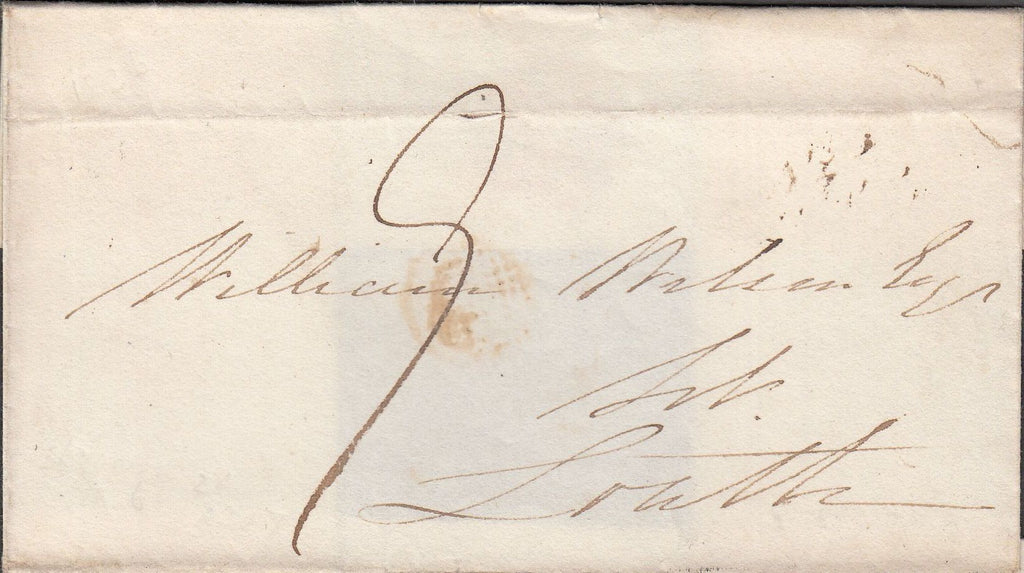 9
William Wilson Esqr
Louth